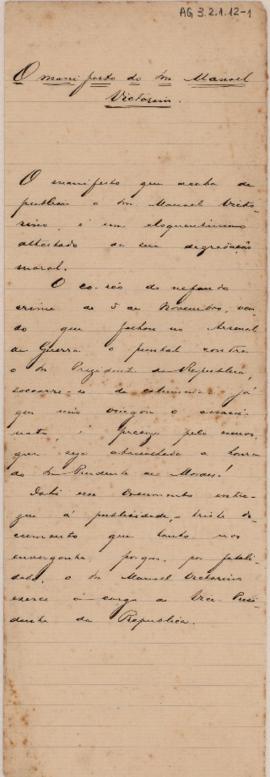 AG 3.2.1.12-1
O manifesto do Sr Manoel
Victorino.
O manifesto que acaba de
publicar o Sr Manoel Victo-
rino, é um eloquentissimo
attestado da sua degradação
moral.
O co-réo do nefando
crime de 5 de Novembro, ven-
do que falhou no Arsenal
de Guerra o punhal contra
o Sr Presidente da Republica,
soccorre-se da calumnia já
que não vingou o assassi-
nato, é preciso pelo menos,
que seja abocanhada a honra
do Sr Prudente de Moraes!
Está esse documento entre-
gue á publicidade, triste do-
cumento que tanto nos
envergonha, porque, por fatali-
dade, o Sr Manoel Victorino
exerce o cargo de Vice Presi-
dente da Republica.